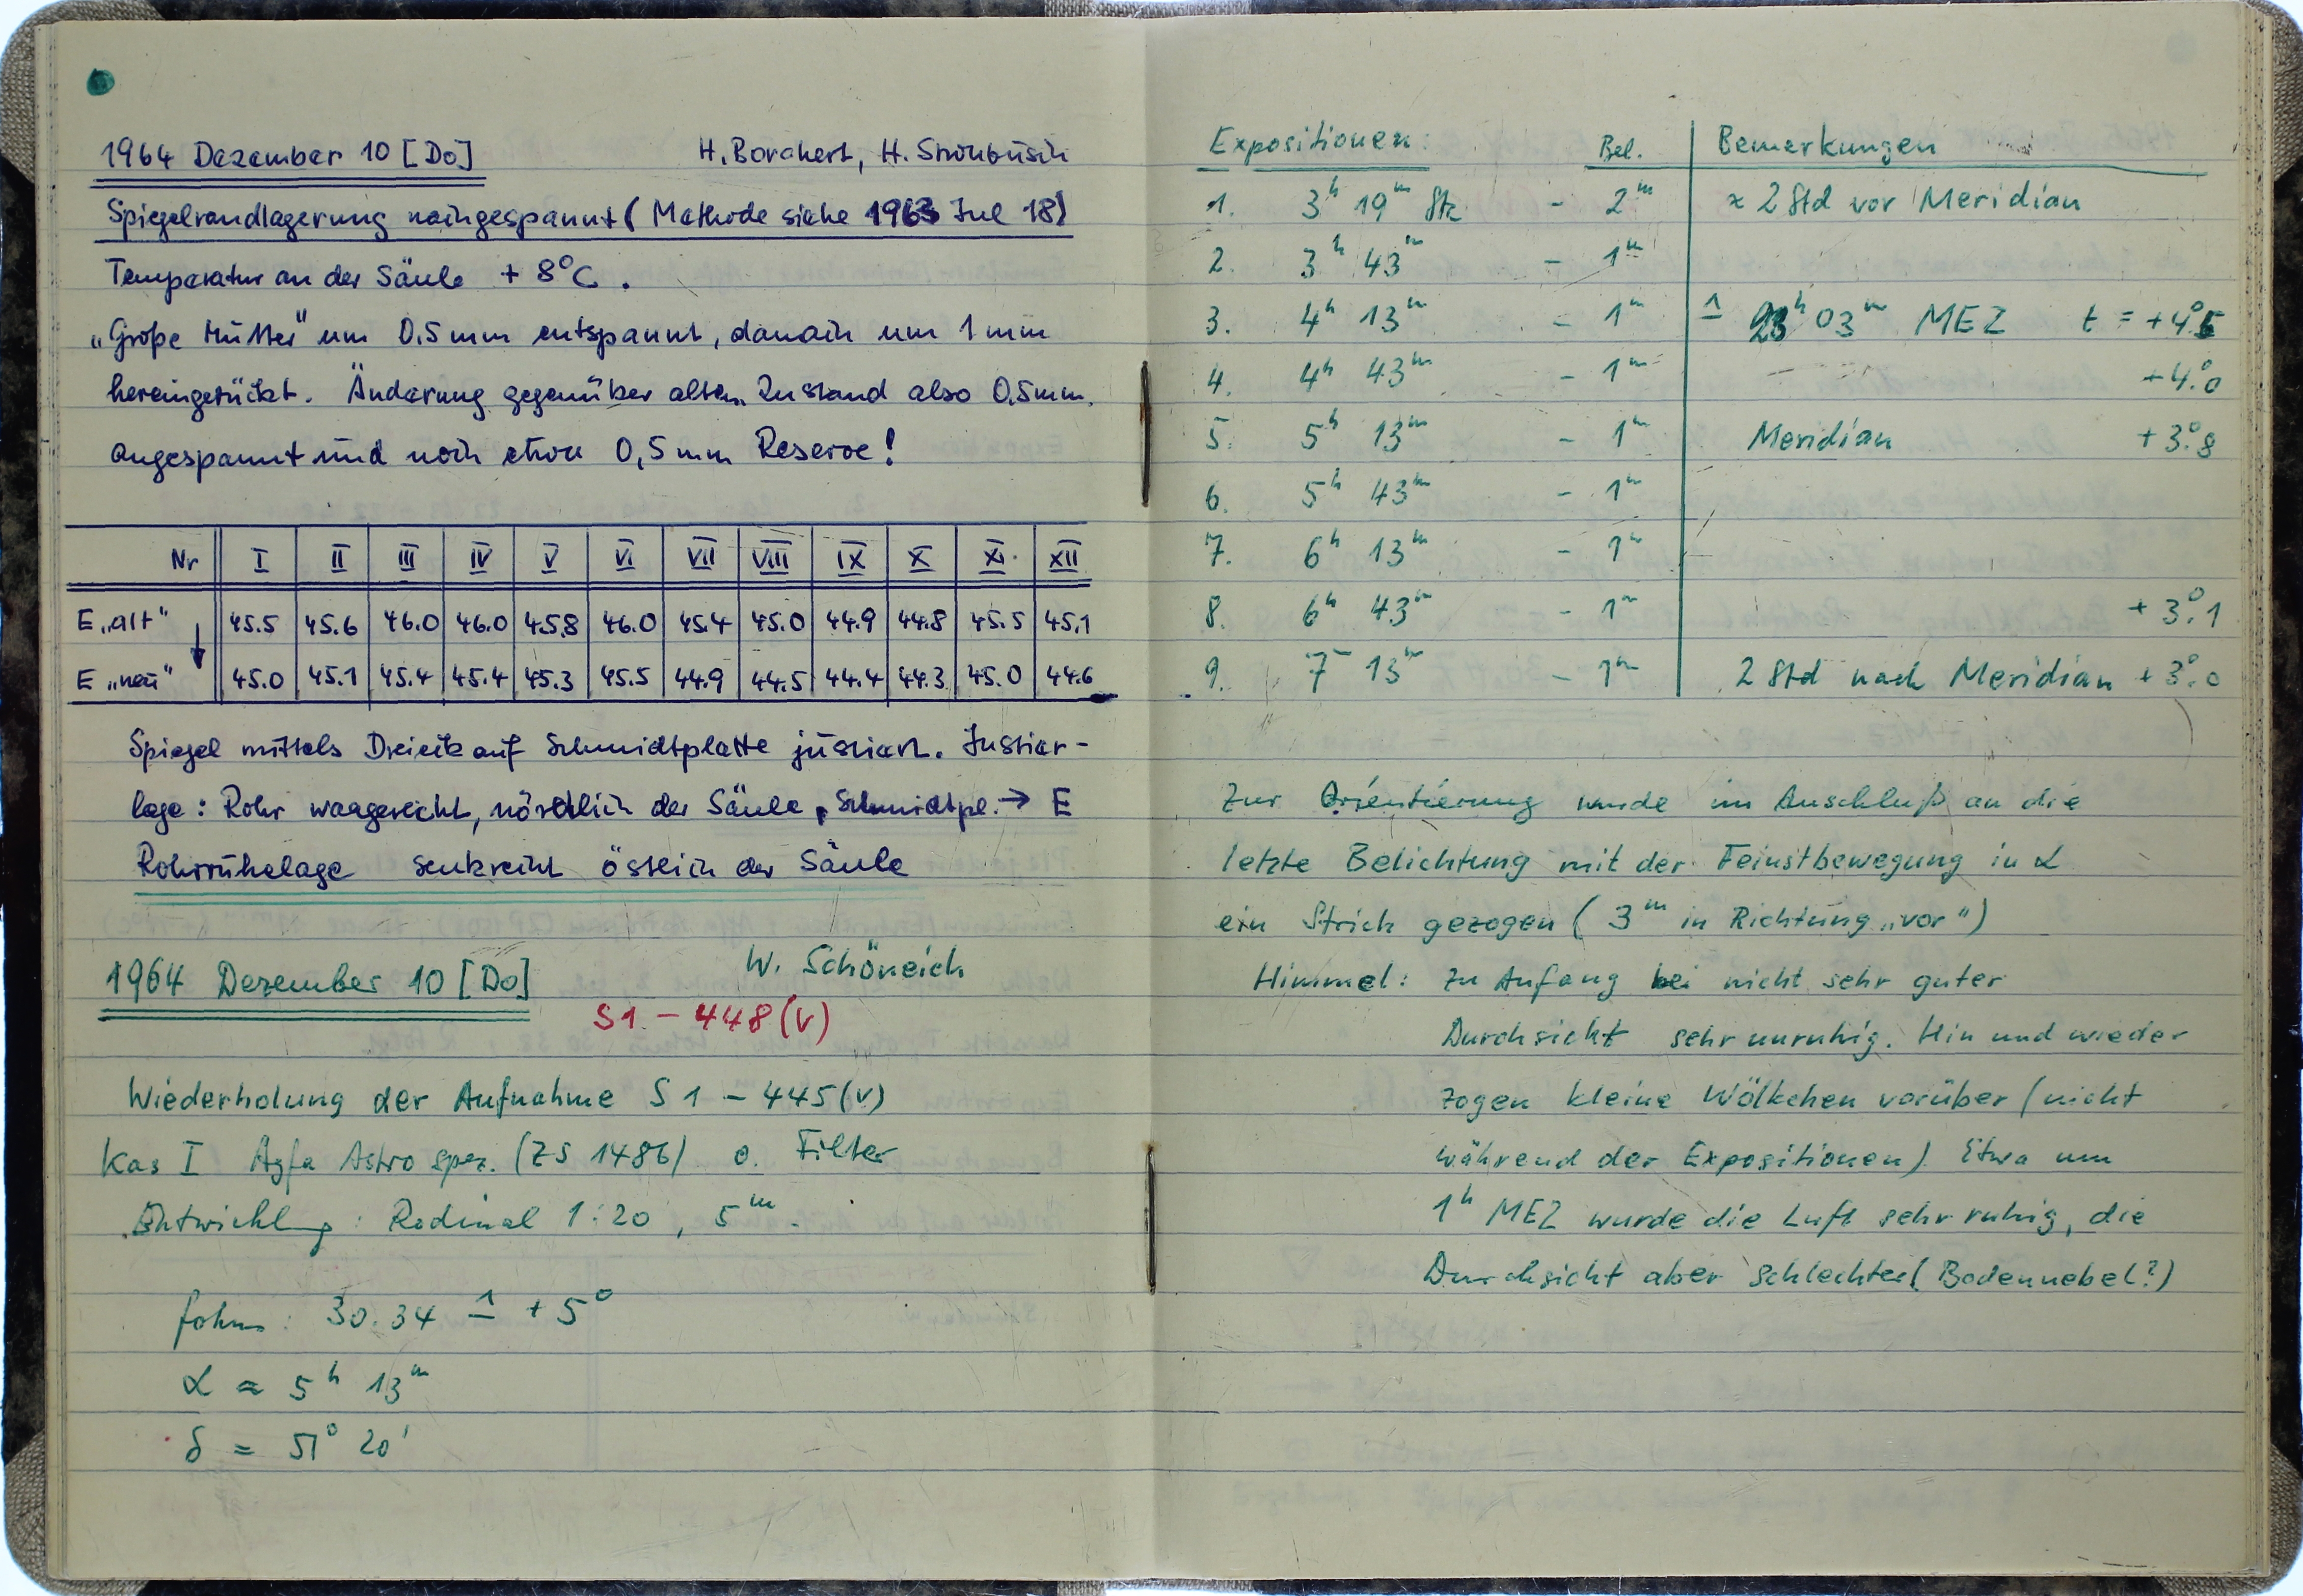 1964 Dezember 10 [Do] H. Borchert, H. Strohbusch
Spiegelrandlagerung nachgespannt (Methode siehe 1963 Jul 18)
Temperatur an der Säule + 8°C.
„Große Mutter" um 0.5 mm entspannt, danach um 1 mm
hereingerückt. Änderung gegenüber altem Zustand also 0,5mm.
angespannt und noch etwa 0,5 mm Reserve!
Nr I II III IV V VI VII VIII IX X XI XII
E „alt" 45.5 45.6 46.0 46.0 45.8 46.0 45.4 45.0 44.9 44.8 45.5 45.1
E „neu" 45.0 45.1 45.4 45.4 45.3 45.5 44.9 44.5 44.4 44.3 45.0 44.6
Spiegel mittels Dreieck auf Schmidtplatte justiert. Justier-
lage: Rohr waagerecht, nördlich der Säule, Schmidtpl. → E
Rohrruhelage senkrecht östlich der Säule
1964 Dezember 10 [Do] W. Schöneich
S1 – 448 (V)
Wiederholung der Aufnahme S 1 – 445 (V)
Kas I Agfa Astro spez. (ZS 1486) o. Filter
Entwicklg: Rodinal 1:20, 5ᵐ.
fokus: 30.34 ≙ + 5°
α ≈ 5ʰ 13ᵐ
δ = 51° 20'
Expositionen: Bel. Bemerkungen
1. 3ʰ 19ᵐ Stz – 2ᵐ ≈ 2 Std vor Meridian
2. 3ʰ 43ᵐ – 1ᵐ
3. 4ʰ 13ᵐ – 1ᵐ ≙ 23ʰ 03ᵐ MEZ t = +4°.5
4. 4ʰ 43ᵐ – 1ᵐ +4°.0
5. 5ʰ 13ᵐ – 1ᵐ Meridian +3°.8
6. 5ʰ 43ᵐ – 1ᵐ
7. 6ʰ 13ᵐ – 1ᵐ
8. 6ʰ 43ᵐ – 1ᵐ +3°.1
9. 7 13ᵐ – 1ᵐ 2 Std nach Meridian +3°.0
Zur Orientierung wurde im Anschluß an die
letzte Belichtung mit der Feinstbewegung in α
ein Strich gezogen (3ᵐ in Richtung „vor")
Himmel: Zu Anfang bei nicht sehr guter
Durchsicht sehr unruhig. Hin und wieder
zogen kleine Wölkchen vorüber (nicht
während der Expositionen) Etwa um
1ʰ MEZ wurde die Luft sehr ruhig, die
Durchsicht aber schlechter (Bodennebel?)